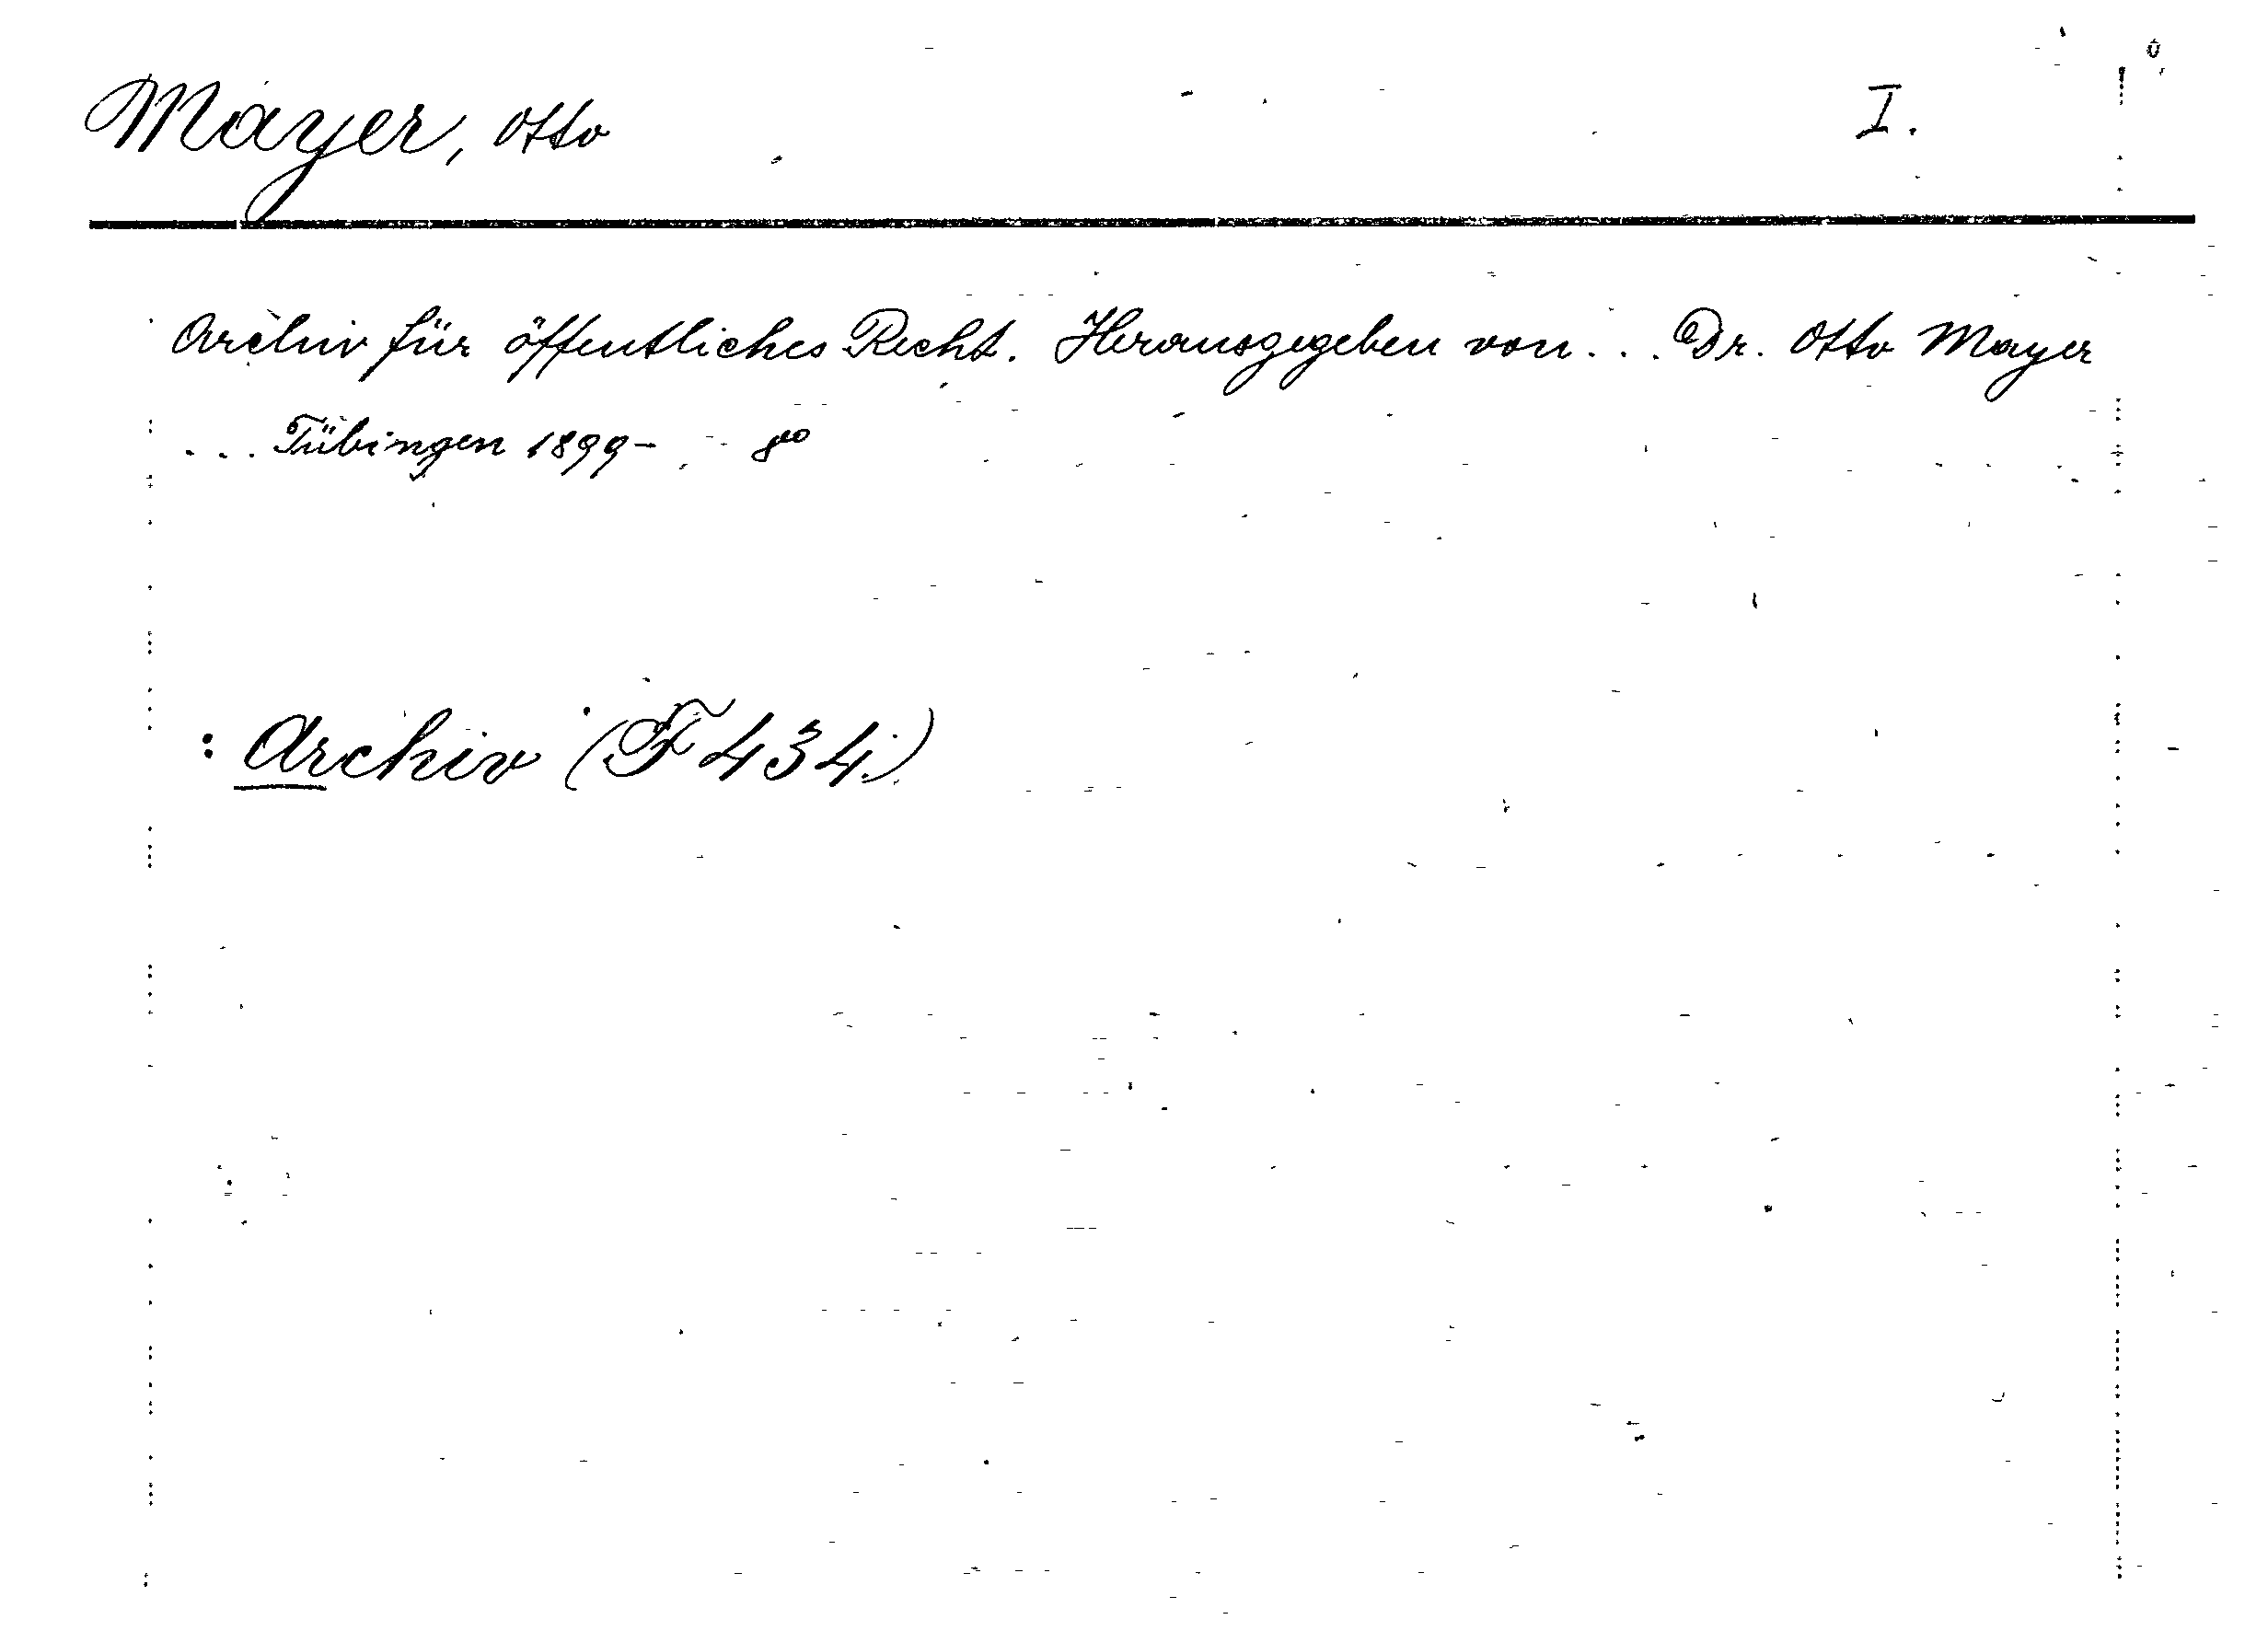 Mayer, Otto
I.
Archiv für öffentliches Recht. Herausgegeben von... Dr. Otto Mayer
... Tübingen 1899- 8vo
: Archiv (F 434)